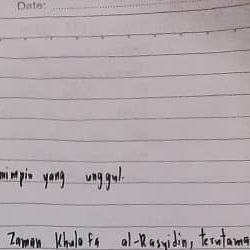 Date:
mimpin yang unggul.
Zaman Khulafa al-Rasyidin, terutama